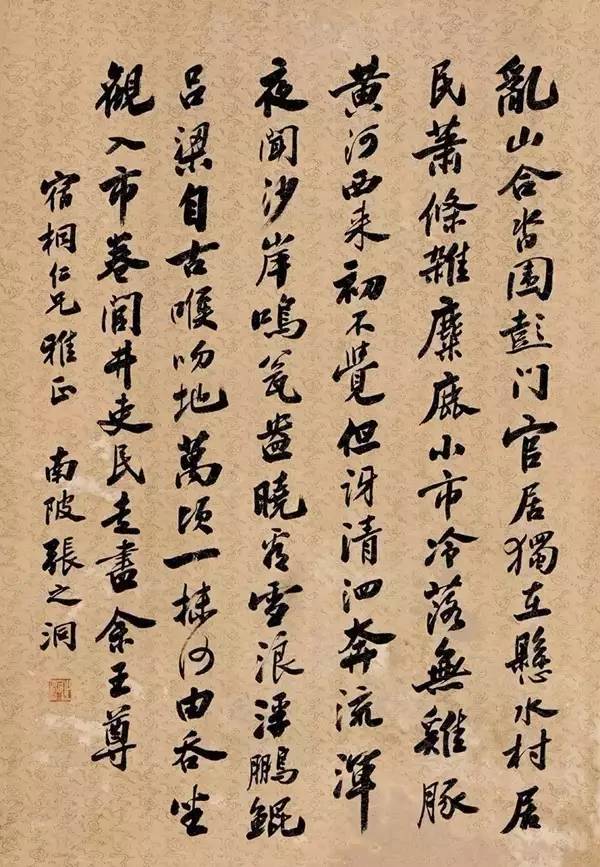 亂山合沓围彭门官居獨在懸水村居
民蕭條雜麋鹿小市冷落無雞豚
黄河西来初不覺但讶清泗奔流渾
夜闻沙岸鳴瓮盎曉看雪浪浮鵬鯤
吕梁自古喉吻地萬頃一抹何由吞坐
觀入市卷闾井吏民走盡余王尊
宿桐仁兄雅正 南陂張之洞